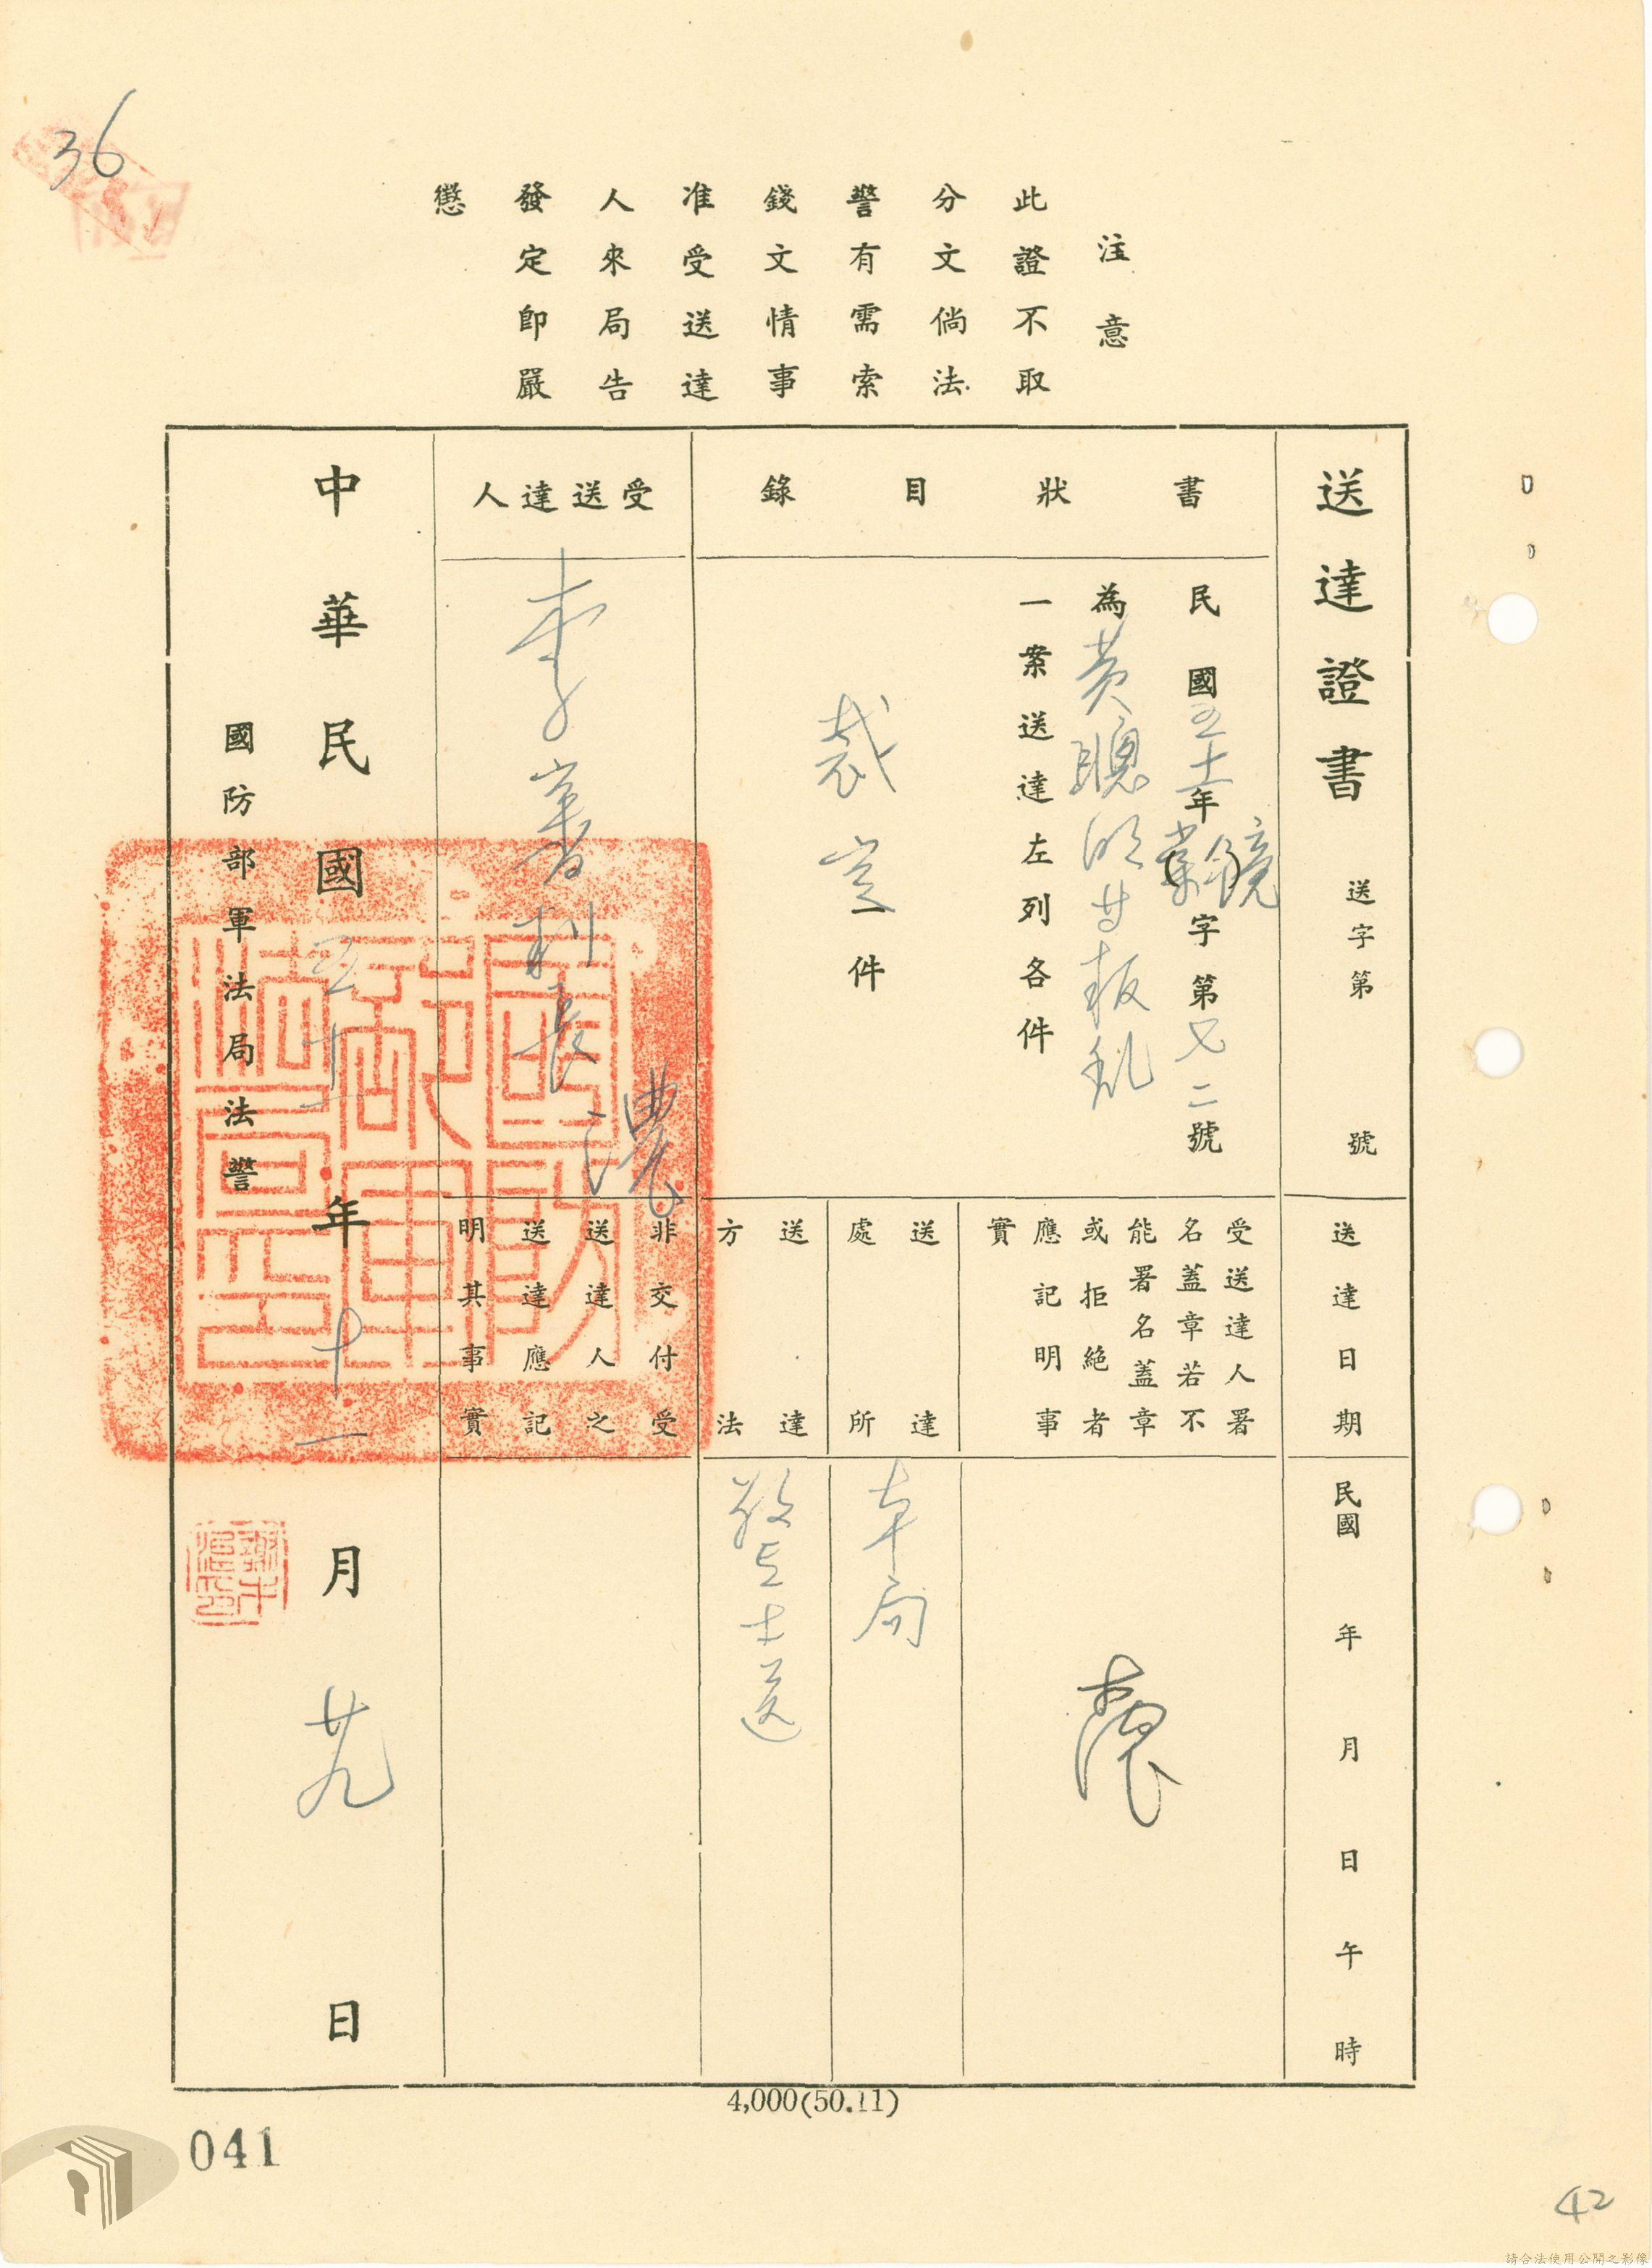 36
注意
此證不取
分文倘法
警有需索
錢文情事
准受送達
人來局告
發定即嚴
懲
送達證書
送字第 號
書狀目錄
民國五十一年 字第七二號
為黃聰明等叛亂
一案送達左列各件
裁定一件
受送達人
李審判長
送達日期
民國 年 月 日 午 時
受送達人署
名蓋章若不
能署名蓋章
或拒絕者
應記明事
實
送達
處所
本局
送達
方法
警士送
非交付受
送達人之
送達應記
明其事實
中華民國五十一年十一月廿九日
國防部軍法局法警
4,000(50.11)
041
42
請合法使用公開之影像